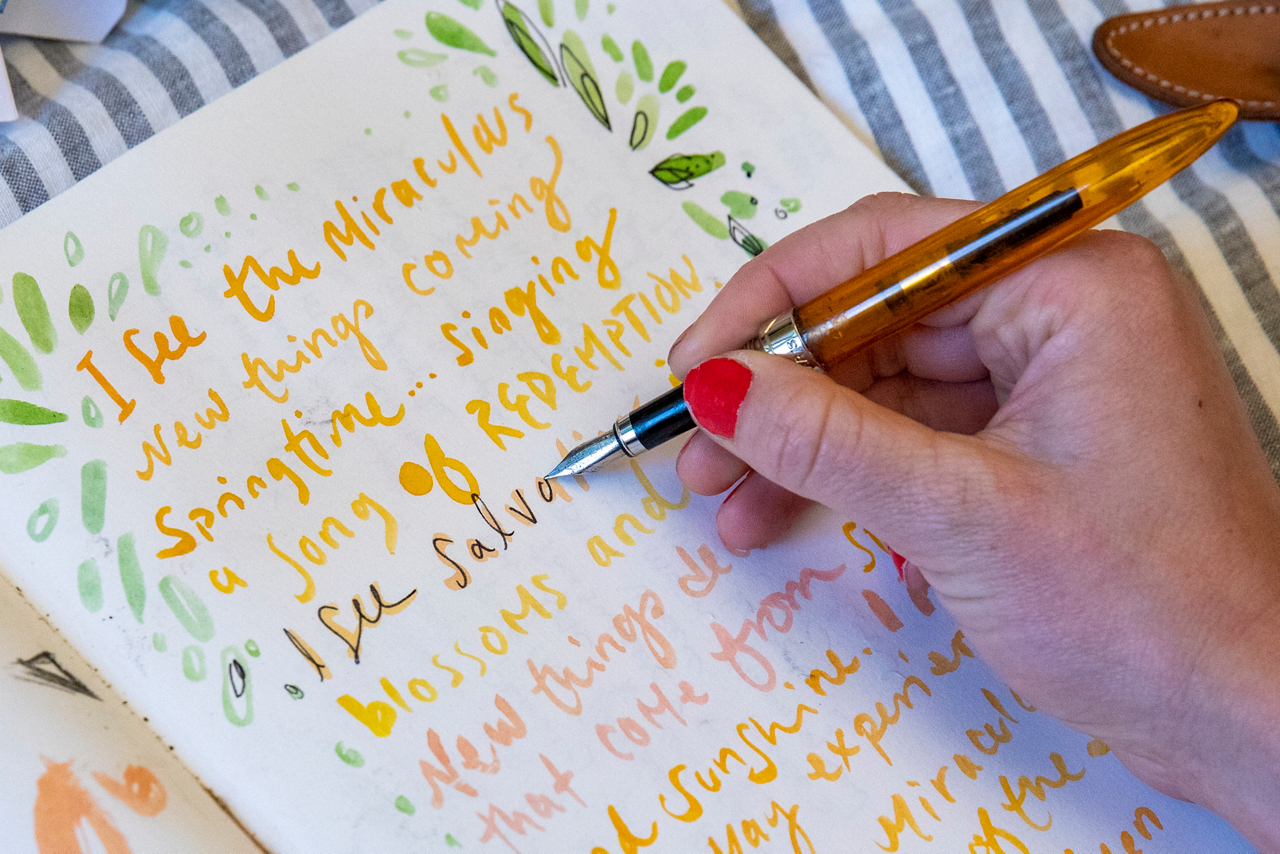 I see the Miraculous
New things coming
Springtime... singing
a song of REDEMPTION
I see Salva
blossoms and
New things de
that come from
sunshine. I
May experien
Miracul
of the